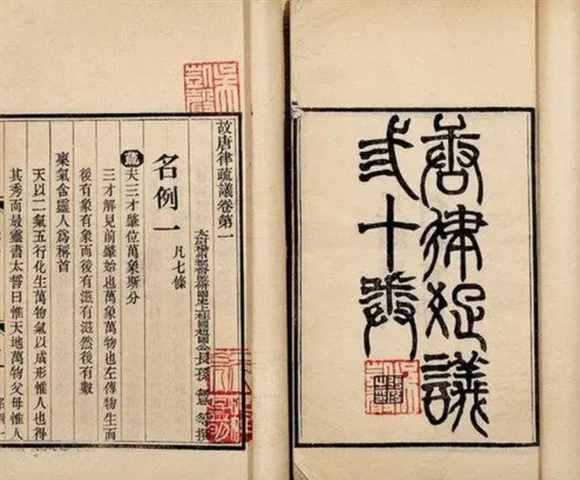 唐律疏議
弎十卷
故唐律疏議卷第一
長孫 等撰
名例一 凡七條
疏 夫三才肇位萬象斯分
三才解見前肇始也萬象萬物也左傳物生而
後有象有象而後有滋有滋然後有數
稟氣含靈人爲稱首
天以二氣五行化生萬物氣以成形惟人也得
其秀而最靈書太誓曰惟天地萬物父母惟人